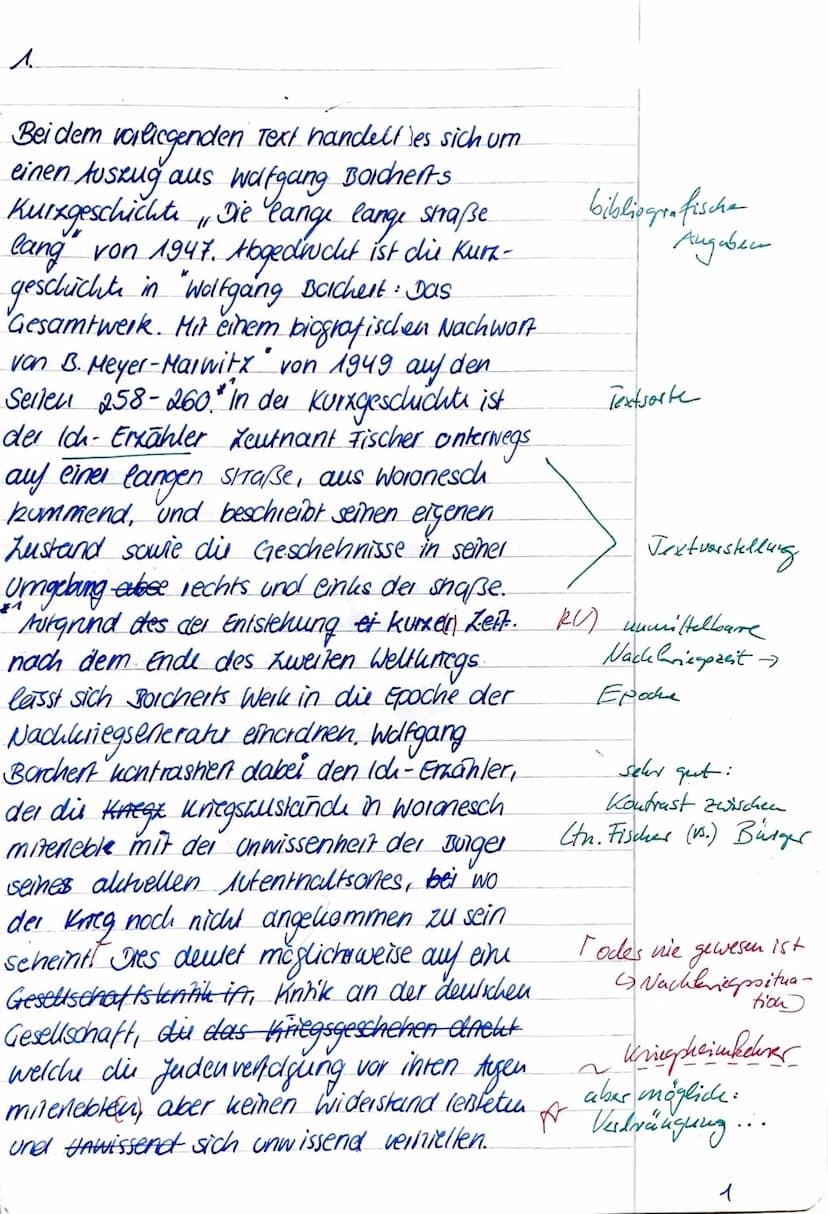 1.
Bei dem vorliegenden Text handelt es sich um
einen Auszug aus Wolfgang Borcherts
Kurzgeschichte „Die lange lange Straße
lang" von 1947. Abgedruckt ist die Kurz-
geschichte in "Wolfgang Borchert: Das
Gesamtwerk. Mit einem biografischen Nachwort
von B. Meyer-Marwitz" von 1949 auf den
Seiten 258-260.*1 In der Kurzgeschichte ist
der Ich-Erzähler Leutnant Fischer unterwegs
auf einer langen Straße, aus Woronesch
kommend, und beschreibt seinen eigenen
Zustand sowie die Geschehnisse in seiner
Umgebung rechts und links der Straße.
*1 Aufgrund des der Entstehung kurze(r) Zeit
nach dem Ende des zweiten Weltkriegs
lässt sich Borcherts Werk in die Epoche der
Nachkriegsliteratur einordnen. Wolfgang
Borchert kontrastiert dabei den Ich-Erzähler,
der die Kriegszustände in Woronesch
miterlebte mit der Unwissenheit der Bürger
seines aktuellen Aufenthaltsortes, bei wo
der Krieg noch nicht angekommen zu sein
scheint. Dies deutet möglicherweise auf eine
Gesellschaftskritik in, Kritik an der deutschen
Gesellschaft, die das Kriegsgeschehen direkt
welche die Judenverfolgung vor ihren Augen
miterlebte(n), aber keinen Widerstand leisteten
und Unwissend sich unwissend verhielten.
bibliografische
Angaben
Textsorte
Textvorstellung
R(√) unmittelbare
Nachkriegszeit →
Epoche
sehr gut:
Kontrast zwischen
Ltn. Fischer (vs.) Bürger
Γ oder nie gewesen ist
↳ Nachkriegssitua-
tion
~ Kriegsheimkehrer
aber möglich:
Verdrängung...
1